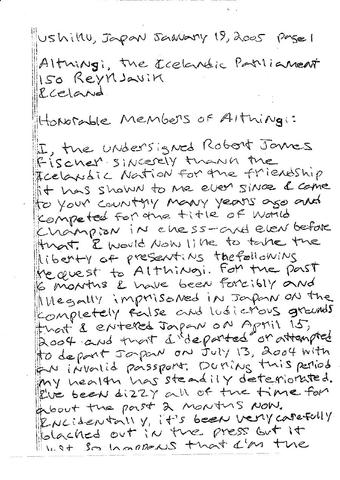 Ushiku, Japan January 19, 2005 page 1
Althingi, the Icelandic Parliament
150 Reykjavik
Iceland
Honorable Members of Althingi:
I, the undersigned Robert James
Fischer sincerely thank the
Icelandic Nation for the friendship
it has shown to me ever since I came
to your country many years ago and
competed for the title of World
Champion in chess—and even before
that. I would now like to take the
liberty of presenting the following
request to Althingi. For the past
6 months I have been forcibly and
Illegally imprisoned in Japan on the
completely false and ludicrous grounds
that I entered Japan on April 15,
2004 and that I "departed" or attempted
to depart Japan on July 13, 2004 with
an invalid passport. During this period
my health has steadily deteriorated,
I've been dizzy all of the time for
about the past 2 months now.
Encidentally, it's been very carefully
blacked out in the press but it
just so happens that I'm the